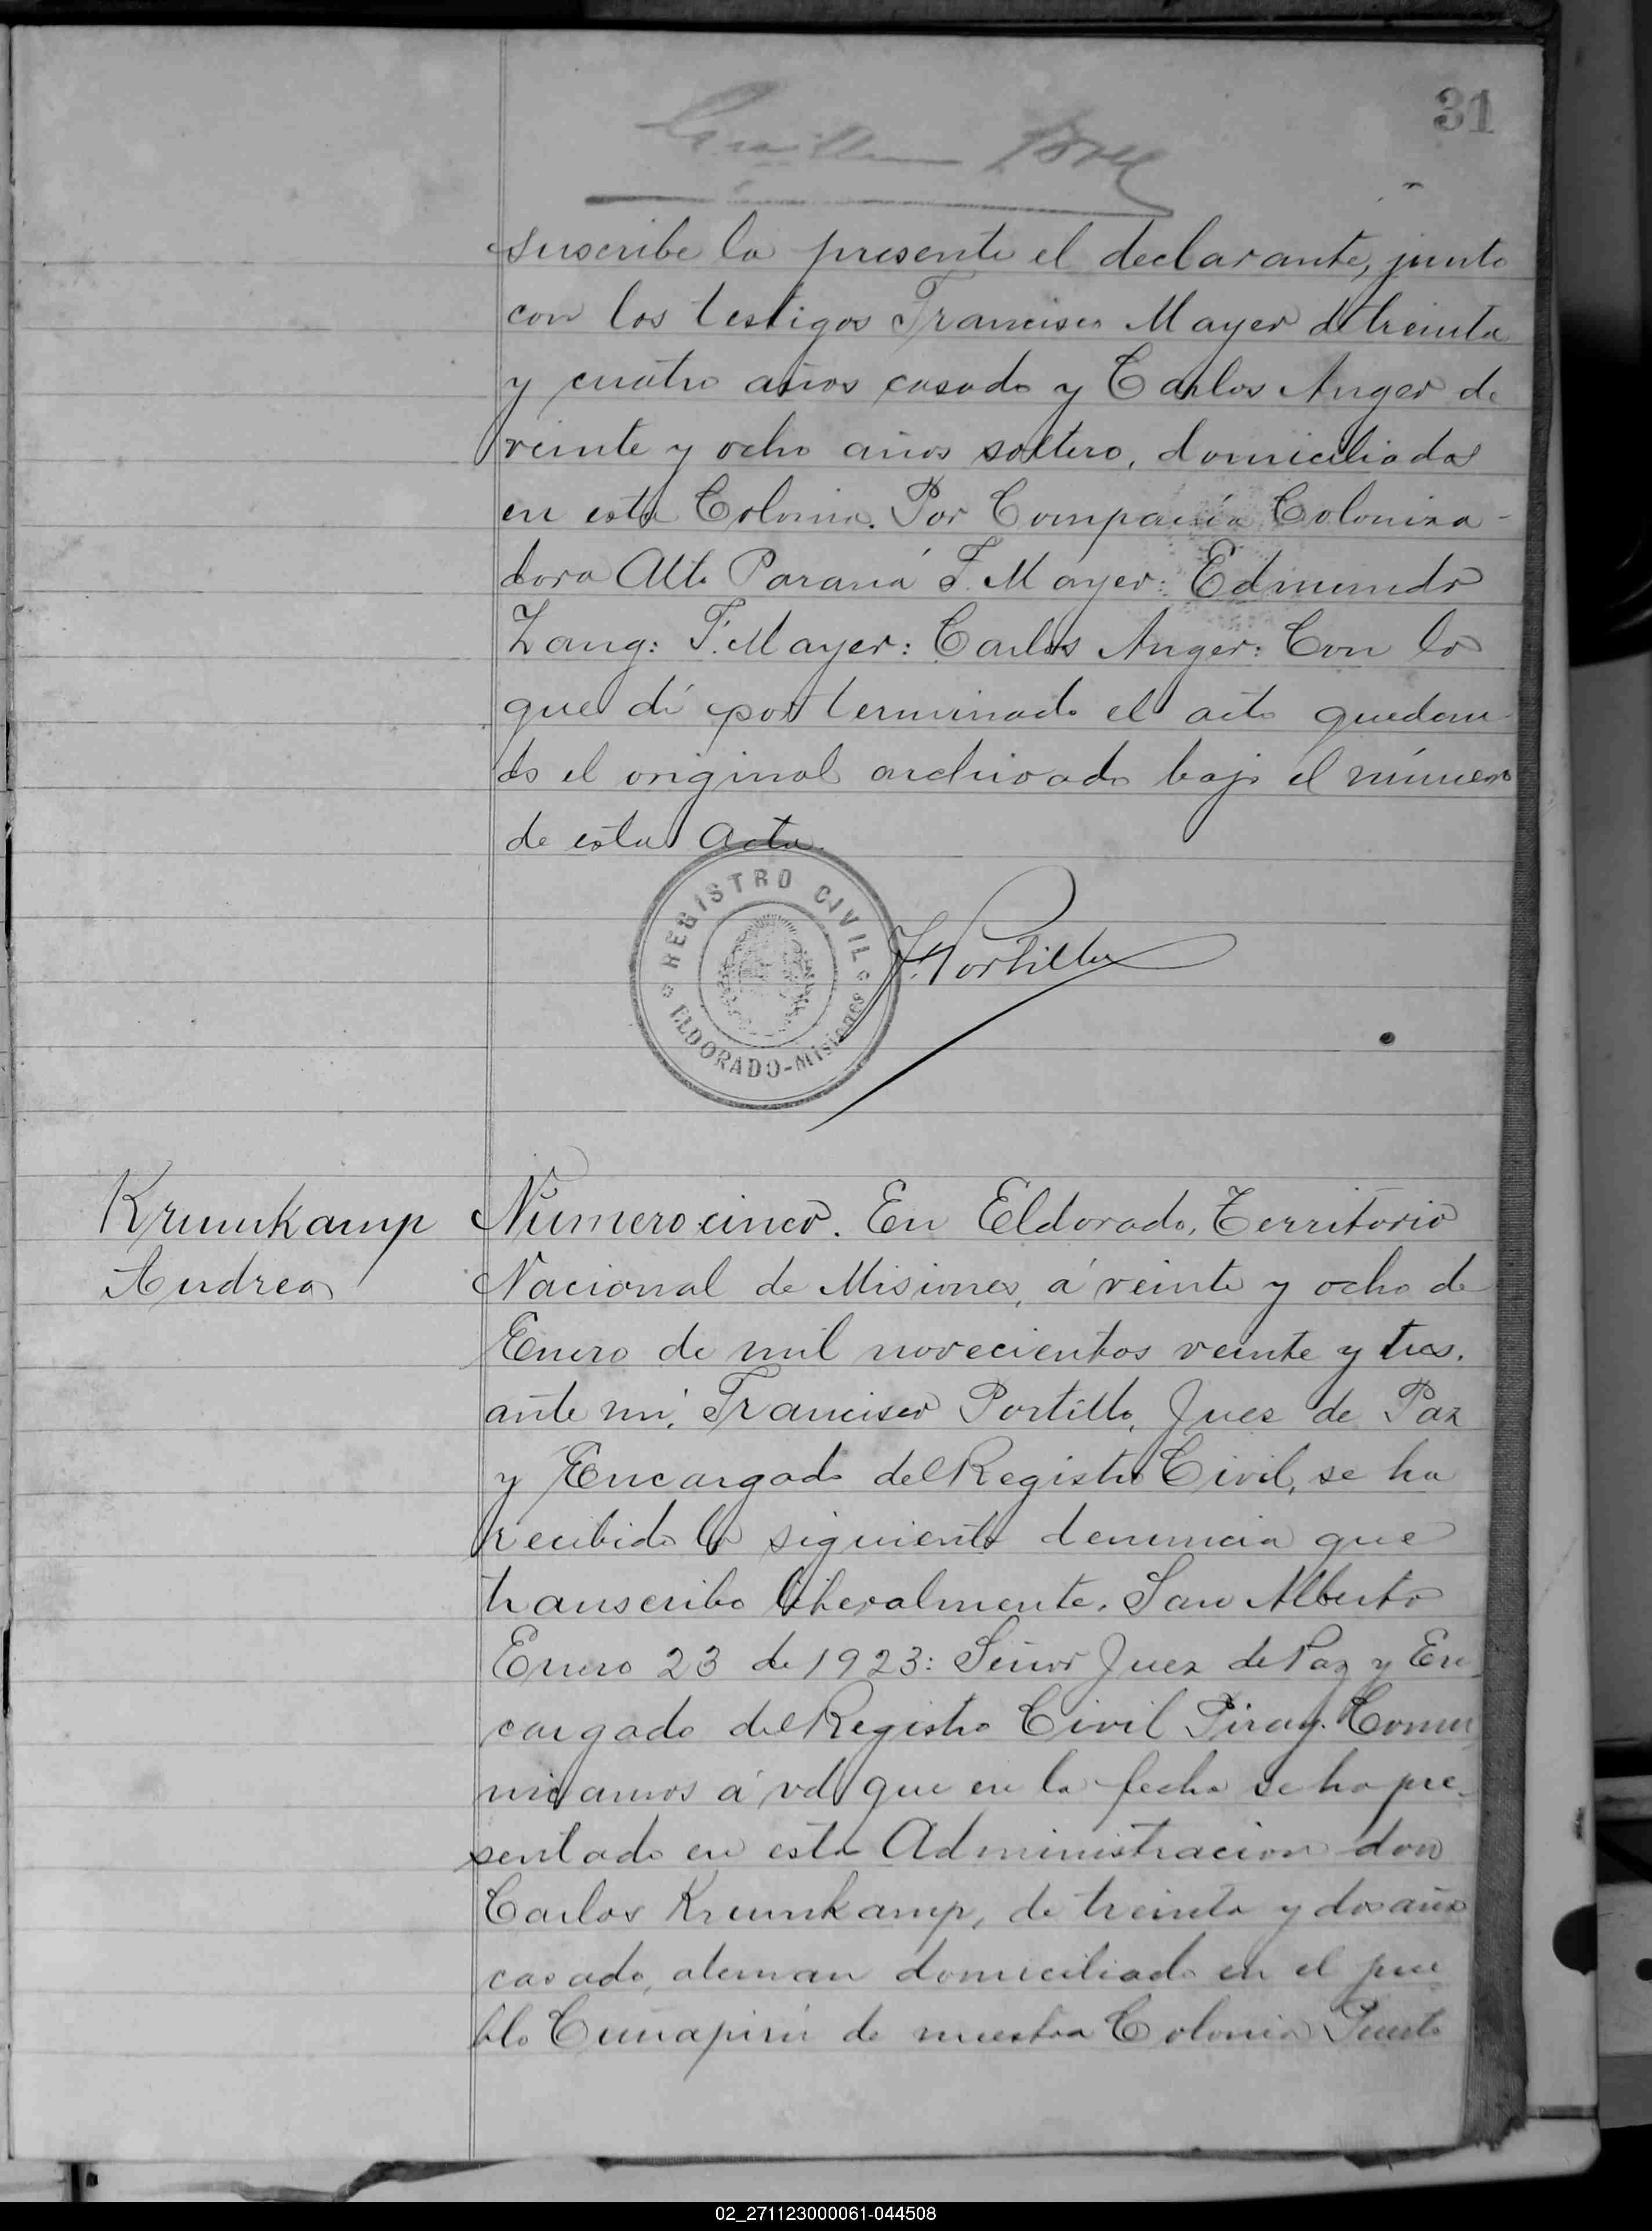 31
suscribe la presente el declarante, junto
con los testigos Francisco Mayer de treinta
y cuatro años casado y Carlos Anger de
veinte y ocho años soltero, domiciliados
en esta Colonia. Por Compañía Coloniza-
dora Alto Paraná F. Mayer: Edmundo
Lang: F. Mayer: Carlos Anger: Con lo
que dí por terminado el acto quedan-
do el original archivado bajo el número
de esta Acta.
REGISTRO CIVIL
ELDORADO-Misiones
F. Portillo
Krumkamp
Andrea
Número cinco. En Eldorado, Territorio
Nacional de Misiones, á veinte y ocho de
Enero de mil novecientos veinte y tres.
ante mí, Francisco Portillo, Juez de Paz
y Encargado del Registro Civil, se ha
recibido la siguiente denuncia que
transcribo literalmente. San Alberto
Enero 23 de 1923: Señor Juez de Paz y En-
cargado del Registro Civil Piray. Comu
nicamos á vd que en la fecha se ha pre-
sentado en esta Administracion don
Carlos Krumkamp, de treinta y dos años
casado, aleman domiciliado en el pue
blo Cuñapirú de nuestra Colonia Puerto
02_271123000061-044508